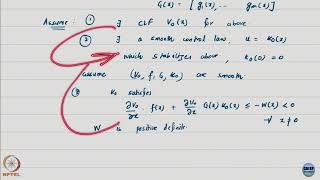 G(x) = [ g₁(x), ... gₘ(x) ]
Assume : ① ∃ CLF V₀(x) for above
② ∃ a smooth control law, u = k₀(x)
which stabilizes above, k₀(0) = 0
assume (V₀, f, G, k₀) are smooth
V₀ satisfies
∂V₀/∂x · f(x) + ∂V₀/∂x G(x) k₀(x) ≤ -W(x) < 0
∀ x ≠ 0
W is positive definite
NPTEL